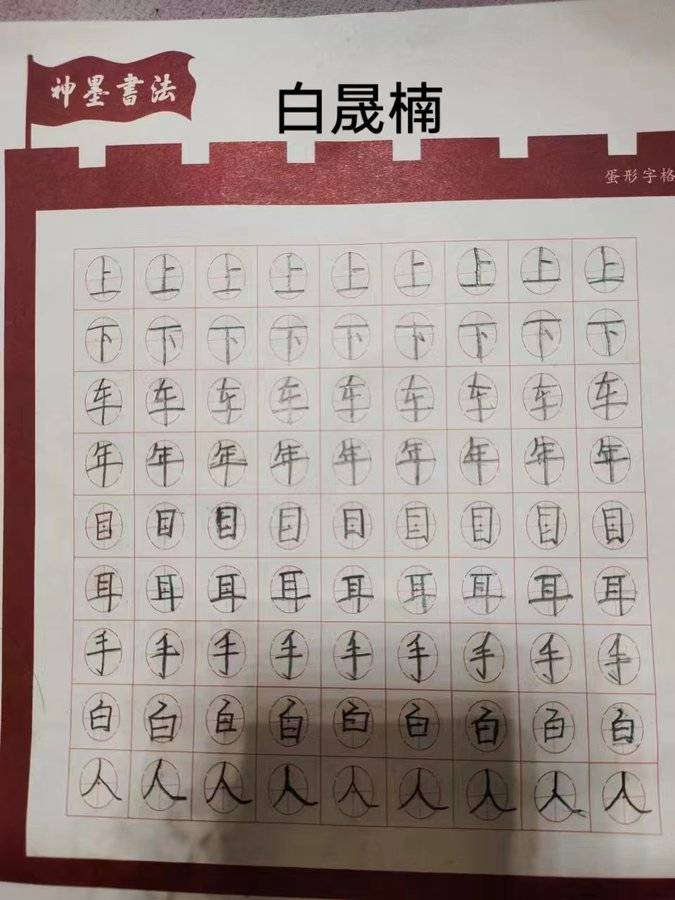 神墨書法
白晟楠
蛋形字格
上上上上上上上上上
下下下下下下下下下
车车车车车车车车车
年年年年年年年年年
目目目目目目目目目
耳耳耳耳耳耳耳耳耳
手手手手手手手手手
白白白白白白白白白
人人人人人人人人人